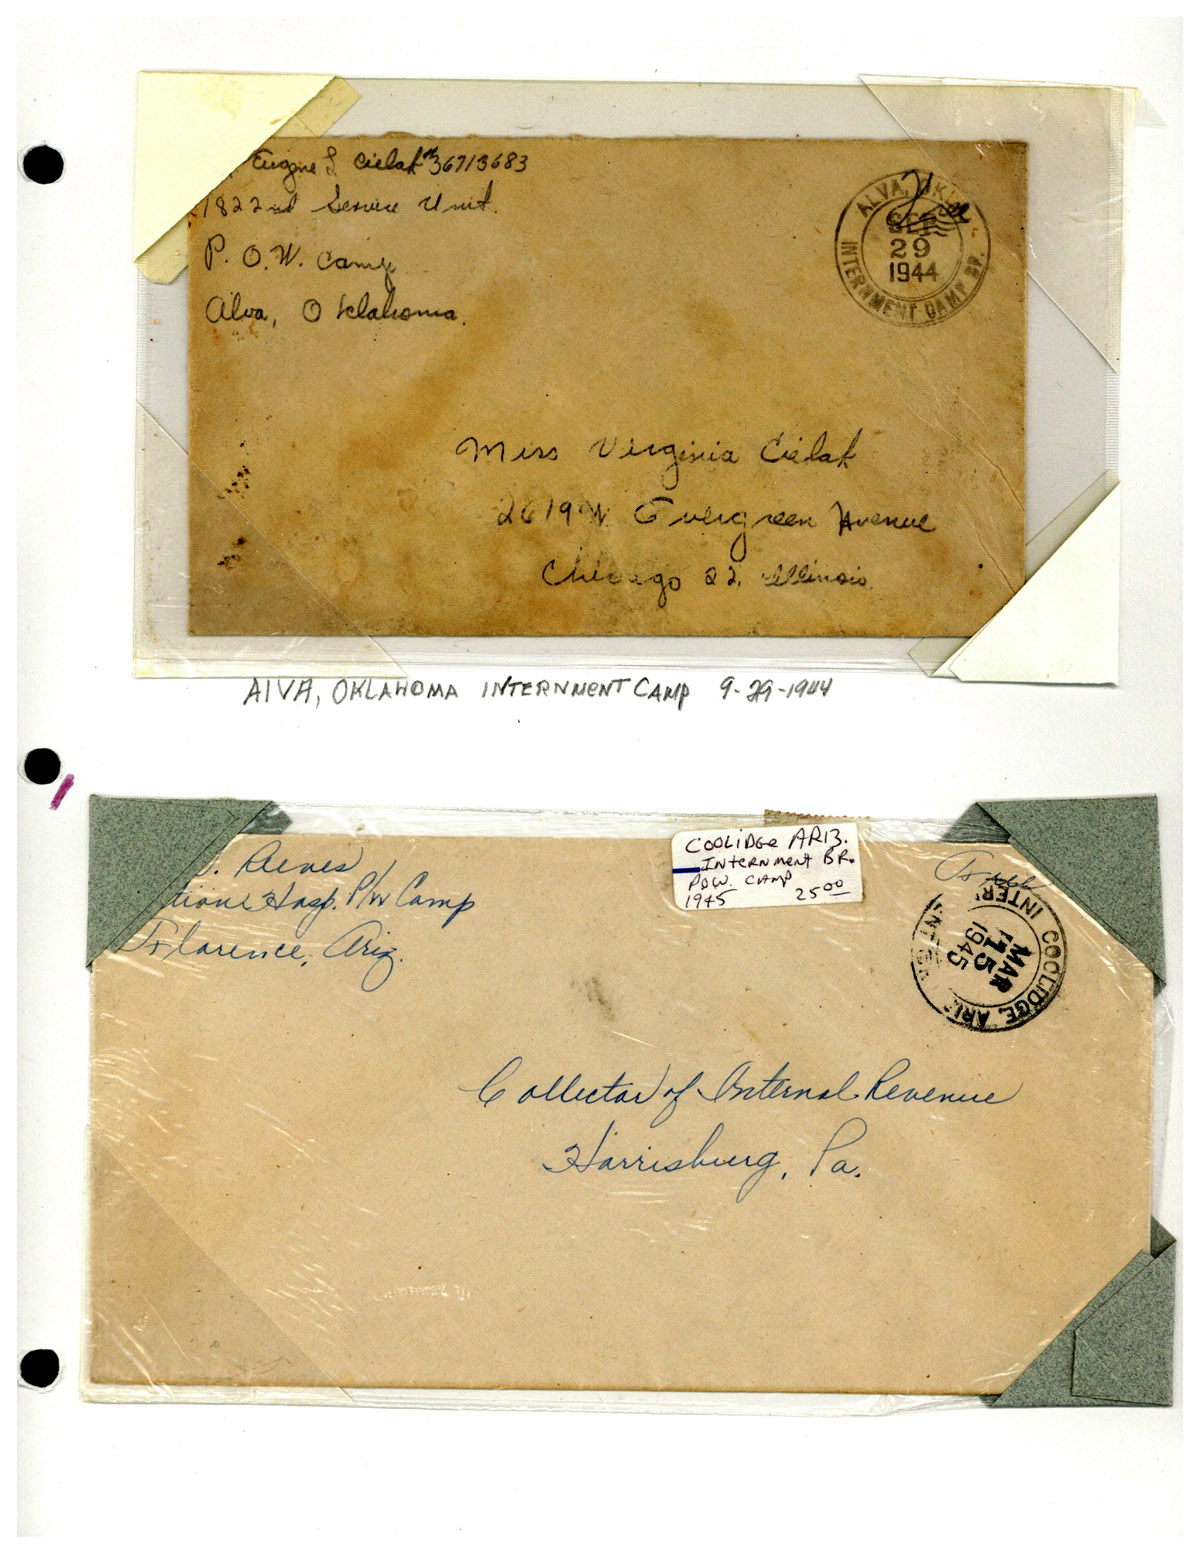 Eugene L Cielak # 36713683
1822nd Service Unit.
P. O. W. Camp
Alva, Oklahoma.
Free
ALVA, OKLA.
SEP
29
1944
INTERNMENT CAMP BR.
Miss Virginia Cielak
2619 W Evergreen Avenue
Chicago 22, Illinois.
AlVA, OKLAHOMA INTERNMENT CAMP 9-29-1944
COOLIDGE ARIZ.
INTERNMENT BR.
POW. CAMP
1945 25 00
Reeves
Hosp. P/W Camp
Florence, Ariz.
Free
COOLIDGE, ARIZ
MAR
15
1945
INTER
Collector of Internal Revenue
Harrisburg, Pa.